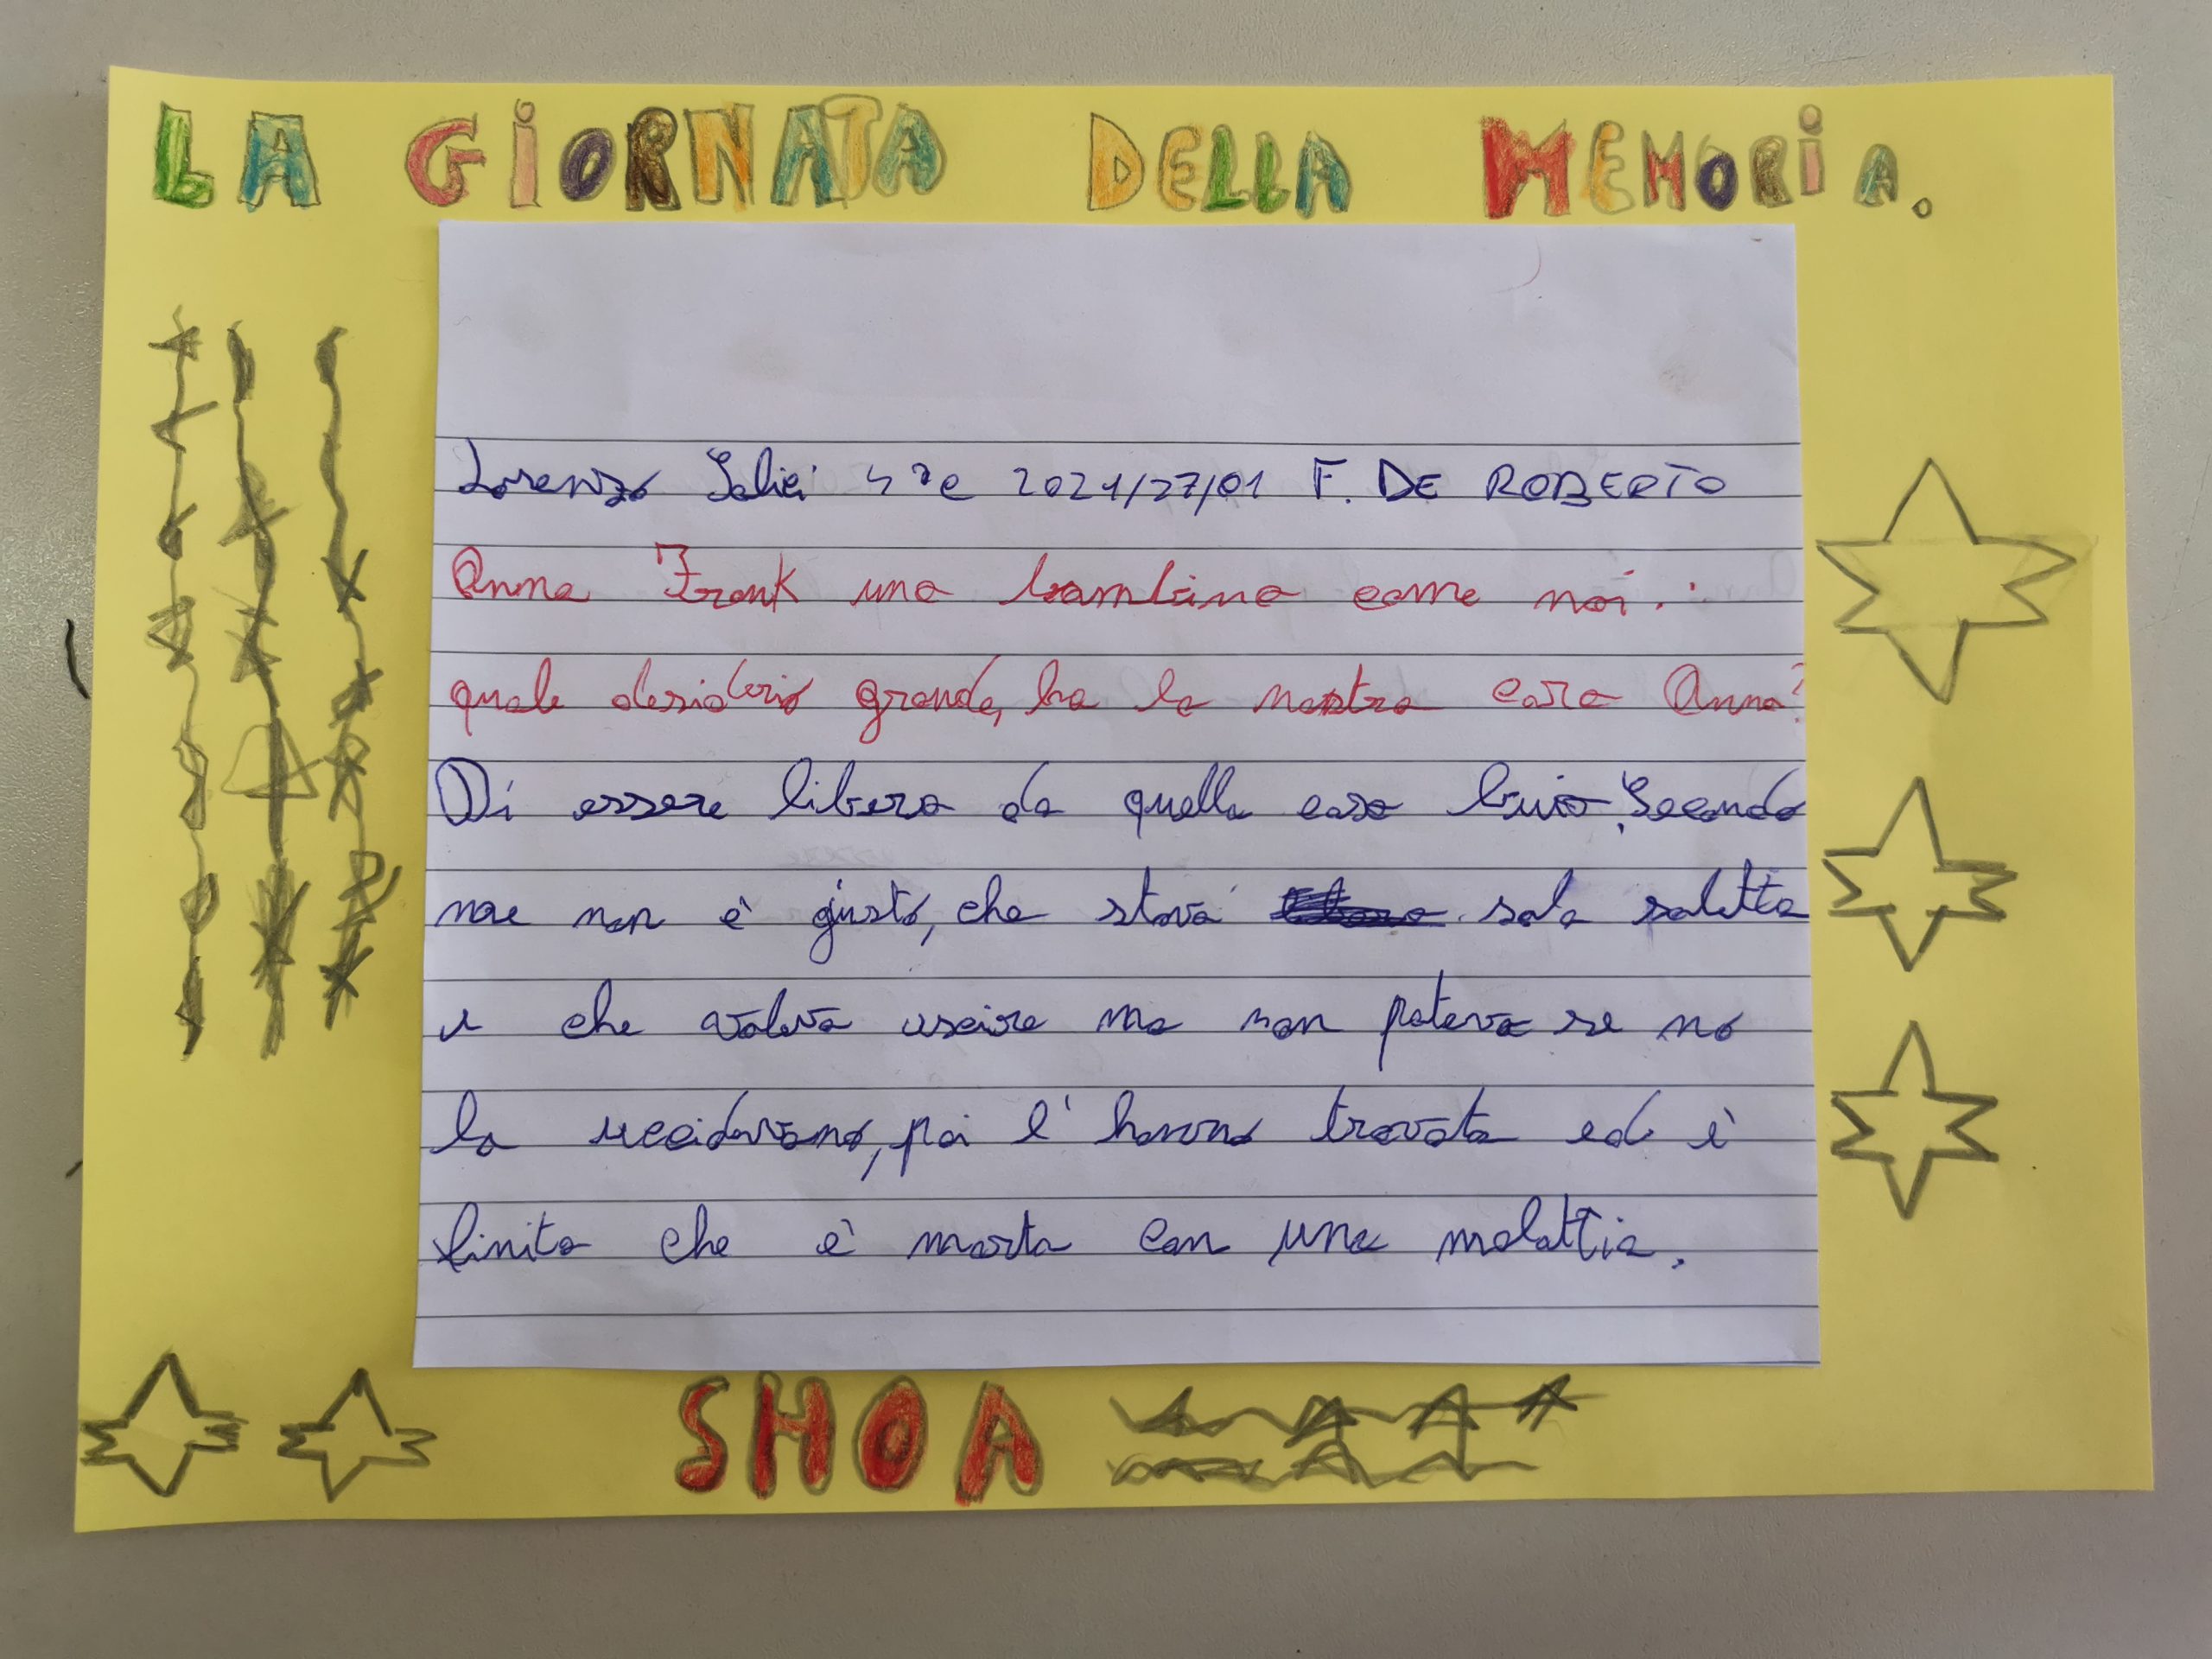 LA GIORNATA DELLA MEMORIA.
Lorenzo 4ªe 2021/27/01 F. DE ROBERTO
Anna Frank una bambina come noi.:
quale desiderio grande, ha la nostra cara Anna?
Di essere libera da quella casa buia. Secondo
me non è giusto, che stava sola soletta
e che voleva uscire ma non poteva se no
la uccidevano, poi l'hanno trovata ed è
finita che è morta con una malattia.
SHOA